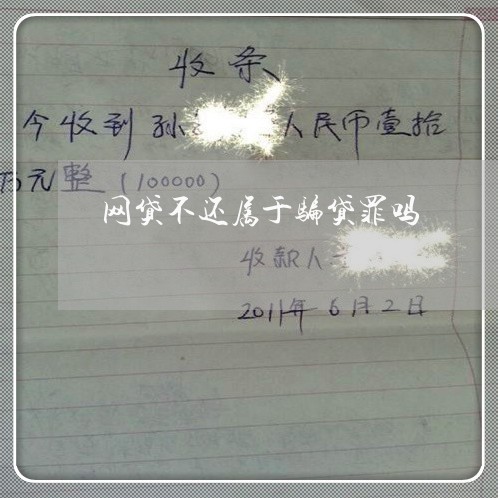 收条
今收到孙 人民币壹拾
万元整(100000)
网贷不还属于骗贷罪吗
收款人
2011年6月2日